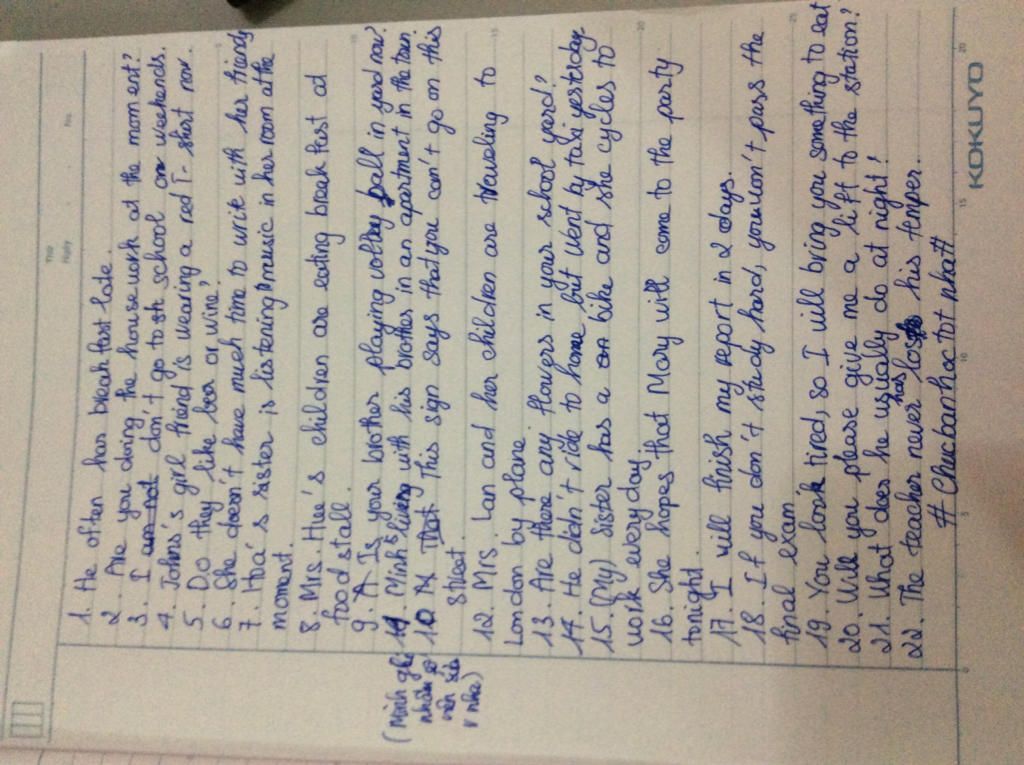 No.
1. He often has breakfast late.
2. Are you doing the housework at the moment?
3. I am not don't go to sch school on weekends.
4. John's girl friend is wearing a red T-shirt now.
5. Do they like beer or wine?
6. She doesn't have much time to write with her friends
7. Hoa's sister is listening music in her room at the
moment.
8. Mrs. Hue's children are eating breakfast at
food stall.
9. Is your brother playing volley ball in yard now?
Minh's living with his brother in an apartment in the town
10 This sign says that you can't go on this
street.
(Mình ghi
nhầm
nên sửa
nha)
12. Mrs. Lan and her children are traveling to
London by plane.
13. Are there any flowers in your school yard?
14. He didn't ride to home but went by taxi yesterday
15. (My) sister has a bike and she cycles to
work every day.
16. She hopes that Mary will come to the party
tonight.
17. I will finish my report in 2 days.
18. If you don't study hard, you won't pass the
final exam
19. You look tired, so I will bring you something to eat
20. Will you please give me a lift to the station?
21. What does he usually do at night?
22. The teacher never has lost his temper.
# Chucbanhoctot nha!!
KOKUYO
5 10 15 20